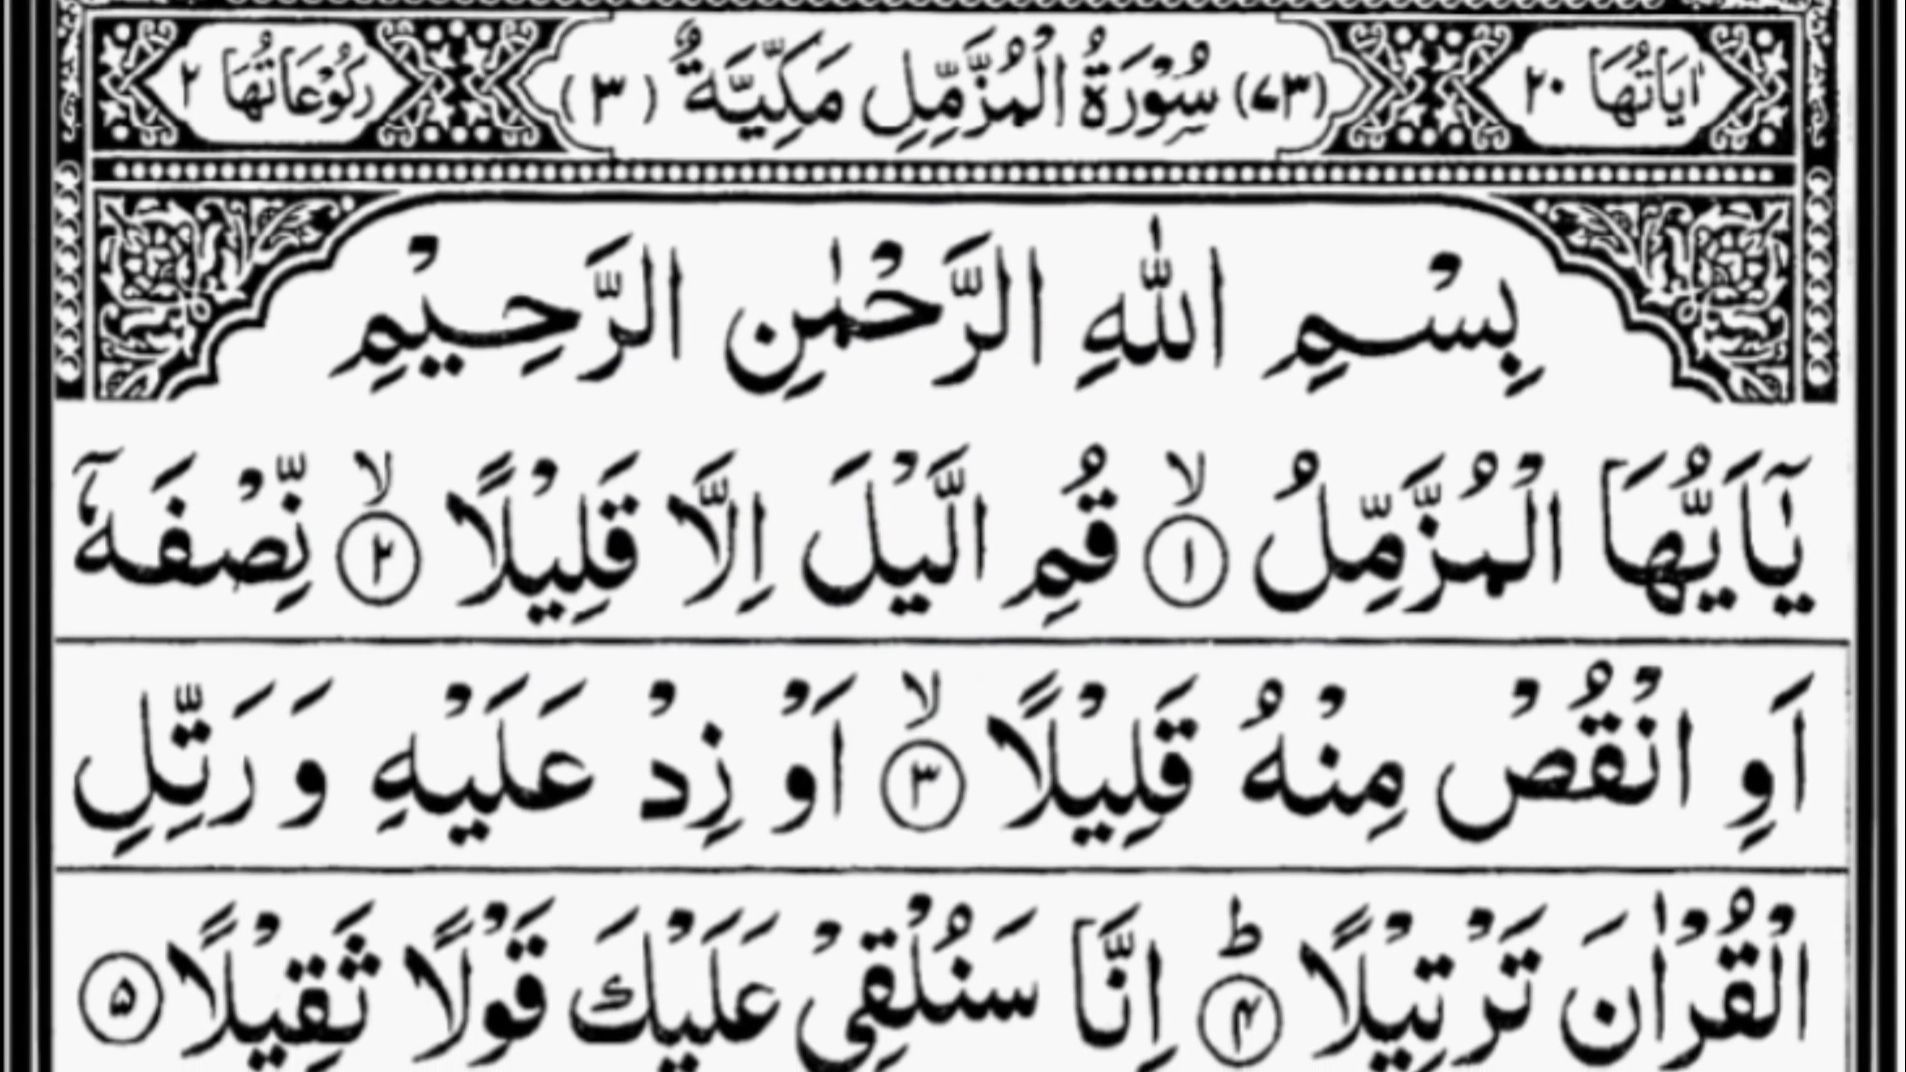 اٰيَاتُهَا ٢٠ (٧٣) سُوْرَةُ الْمُزَّمِّلِ مَكِّيَّةٌ (٣) رُكُوْعَاتُهَا ٢
بِسْمِ اللّٰهِ الرَّحْمٰنِ الرَّحِيْمِ
يٰۤاَيُّهَا الْمُزَّمِّلُ ۙ﴿١﴾ قُمِ الَّيْلَ اِلَّا قَلِيْلًا ۙ﴿٢﴾ نِّصْفَهٗۤ
اَوِ انْقُصْ مِنْهُ قَلِيْلًا ۙ﴿٣﴾ اَوْ زِدْ عَلَيْهِ وَ رَتِّلِ
الْقُرْاٰنَ تَرْتِيْلًا ؕ﴿۴﴾ اِنَّا سَنُلْقِيْ عَلَيْكَ قَوْلًا ثَقِيْلًا ﴿۵﴾